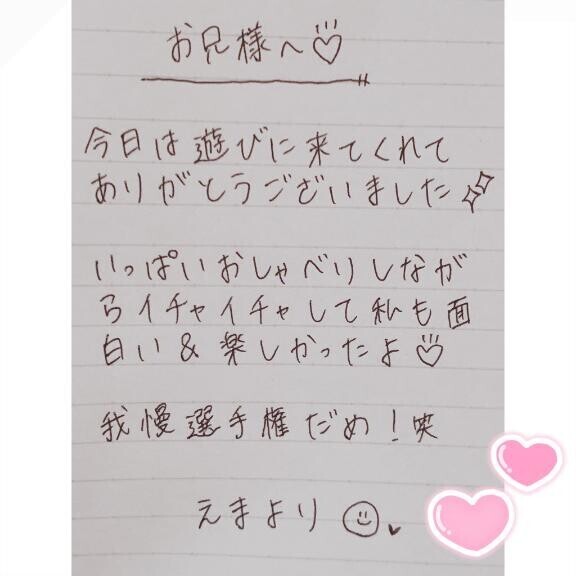 お兄様へ♡
今日は遊びに来てくれて
ありがとうございました✨
いっぱいおしゃべりしなが
らイチャイチャして私も面
白い&楽しかったよ♡
我慢選手権だめ!笑
えまより☺♥